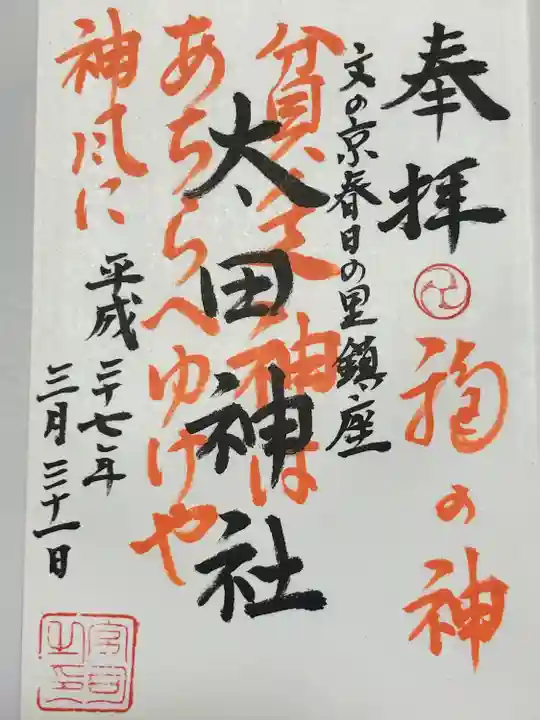 奉拝
福の神
文の京春日の里鎮座
貧乏神は
太田神社
あちらへゆけや
神風に
平成二十七年
三月三十一日
宮司之印